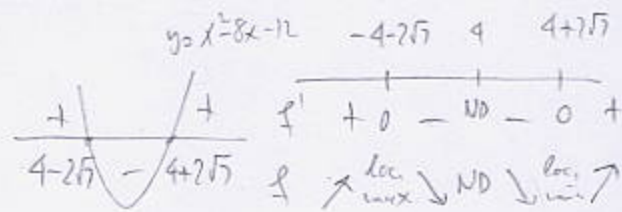 y = x²-8x-12
-4-2√7 4 4+2√7
+ +
4-2√7 - 4+2√7
f' + 0 - ND - 0 +
f ↗ loc. max ↘ ND ↘ loc. min ↗